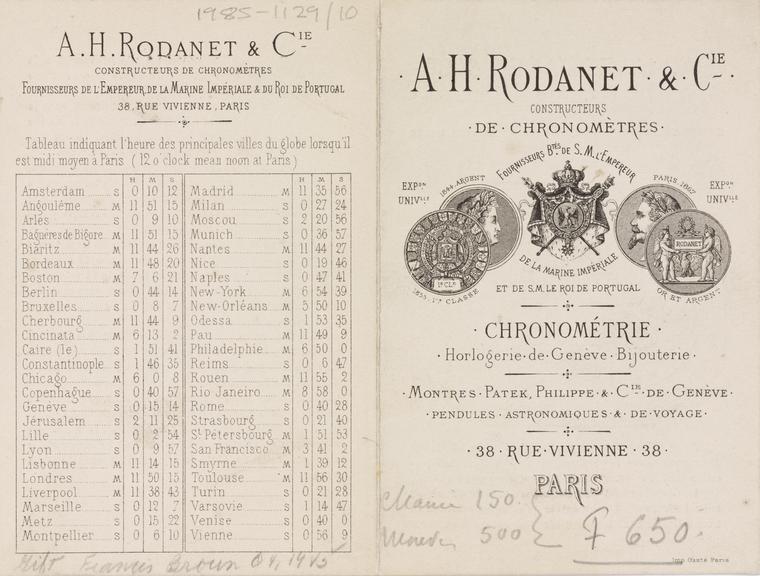 1985-1129/10
A.H. RODANET & CIE
CONSTRUCTEURS DE CHRONOMÈTRES
FOURNISSEURS DE L'EMPEREUR, DE LA MARINE IMPÉRIALE & DU ROI DE PORTUGAL
38, RUE VIVIENNE, PARIS
Tableau indiquant l'heure des principales villes du globe lorsqu'il
est midi moyen à Paris (12 o'clock mean noon at Paris)
H M S
Amsterdam S 0 10 12
Angoulême M 11 51 15
Arles S 0 9 10
Bagnères de Bigore M 11 51 15
Biâritz M 11 44 26
Bordeaux M 11 48 20
Boston M 7 6 21
Berlin S 0 44 14
Bruxelles S 0 8 7
Cherbourg M 11 44 9
Cincinata M 6 13 2
Caire (le) S 1 51 41
Constantinople S 1 46 35
Chicago M 6 0 8
Copenhague S 0 40 57
Genève S 0 15 14
Jérusalem S 2 11 25
Lille S 0 2 54
Lyon S 0 9 57
Lisbonne M 11 14 15
Londres M 11 50 15
Liverpool M 11 38 43
Marseille S 0 12 7
Metz S 0 15 22
Montpellier S 0 6 10
H M S
Madrid M 11 35 56
Milan S 0 27 24
Moscou S 2 20 56
Munich S 0 36 57
Nantes M 11 44 27
Nice S 0 19 46
Naples S 0 47 41
New-York M 6 54 39
New-Orléans M 5 50 10
Odessa S 1 53 35
Pau M 11 49 9
Philadelphie M 6 50 0
Reims S 0 6 47
Rouen M 11 55 2
Rio Janeiro M 8 58 0
Rome S 0 40 28
Strasbourg S 0 21 40
St Pétersbourg M 1 51 53
San Francisco M 3 41 2
Smyrne M 1 39 12
Toulouse M 11 56 30
Turin S 0 21 28
Varsovie S 1 14 47
Venise S 0 40 0
Vienne S 0 56 9
Gift Frances Broun
·A·H·RODANET·&·CIE·
CONSTRUCTEURS
·DE·CHRONOMÈTRES·
FOURNISSEURS BTÉS DE S.M. L'EMPEREUR
EXPON
UNIVLLE
1844 ARGENT
PARIS 1867
EXPON
UNIVLLE
1E CLE
RODANET
1855 1RE CLASSE
DE LA MARINE IMPÉRIALE
OR ET ARGENT
ET DE S.M. LE ROI DE PORTUGAL
·CHRONOMÉTRIE·
·Horlogerie·de·Genève·Bijouterie·
·MONTRES·PATEK, PHILIPPE·&·CIE·DE·GENÈVE·
·PENDULES·ASTRONOMIQUES·&·DE·VOYAGE·
·38·RUE·VIVIENNE·38·
PARIS
150
500
F 650.
Paris